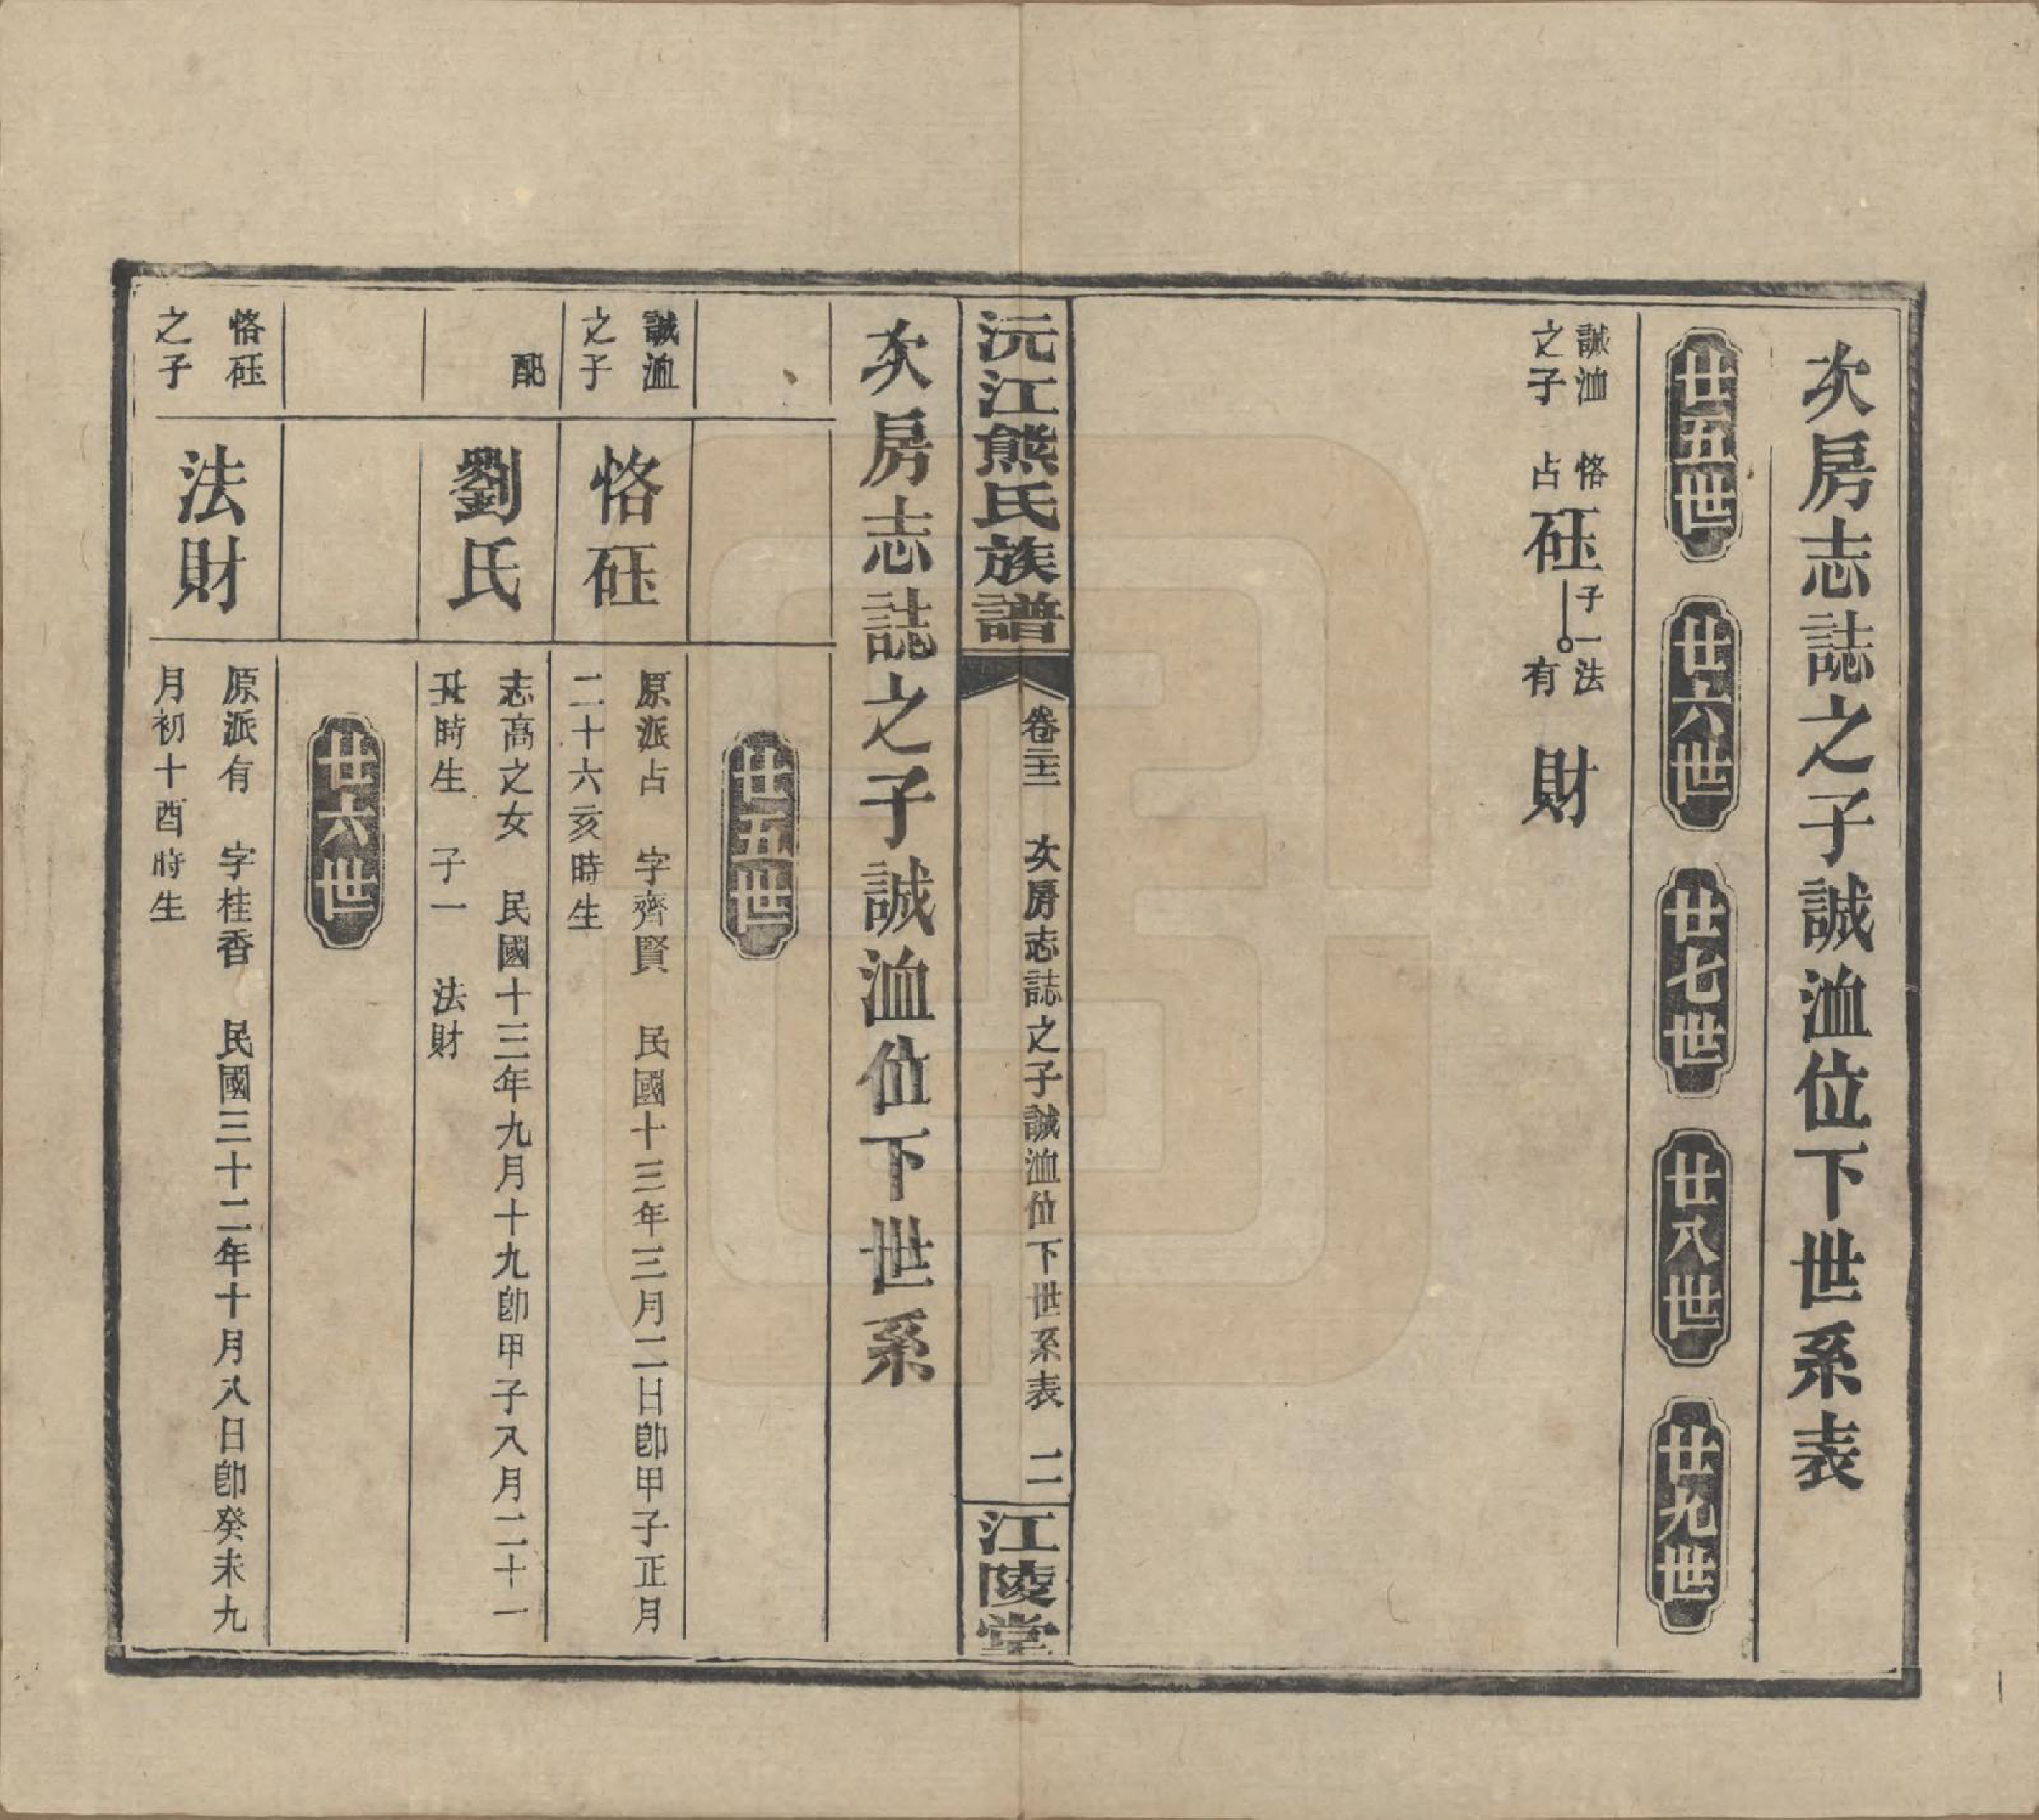 次房志誌之子誠洫位下世系表
廿五世
廿六世
廿七世
廿八世
廿九世
誠洫
之子
恪占砡
子一法有
財
沅江熊氏族譜
卷二十三 次房志誌之子誠洫位下世系表 二
江陵堂
次房志誌之子誠洫位下世系
廿五世
誠洫
之子
恪砡
原派占 字齊賢 民國十三年三月二日卽甲子正月
二十六亥時生
配
劉氏
志高之女 民國十三年九月十九卽甲子八月二十一
丑時生 子一 法財
廿六世
恪砡
之子
法財
原派有 字桂香 民國三十二年十月八日卽癸未九
月初十酉時生